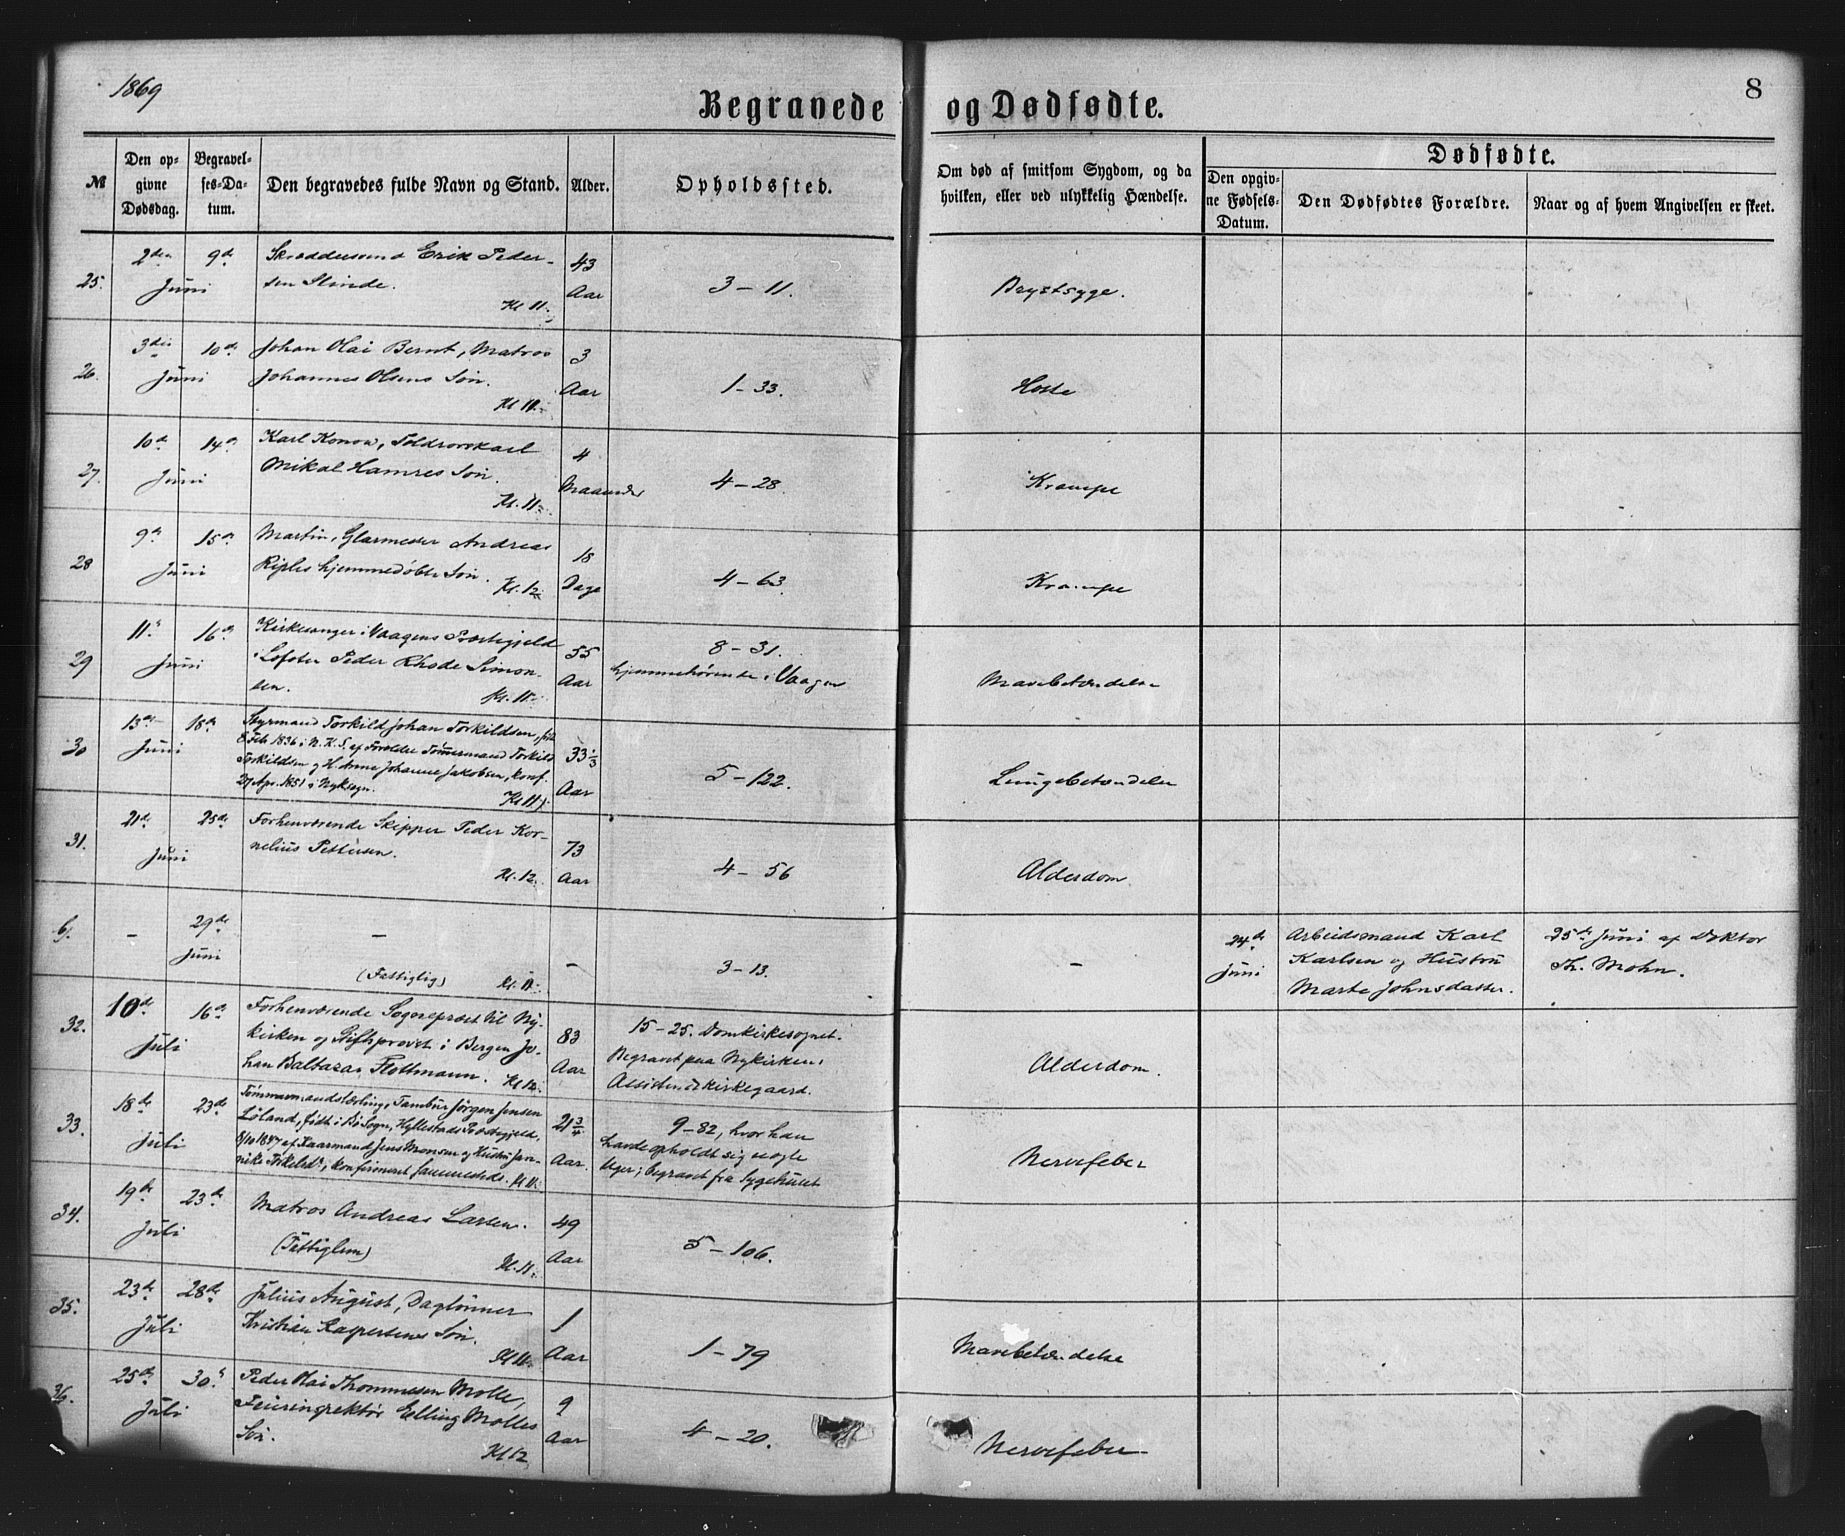 1869
8
Begravede og Dødfødte.
№
Den op-
givne
Dødsdag.
Begravel-
ses-Da-
tum.
Den begravedes fulde Navn og Stand.
Alder.
Opholdssted.
Om død af smitsom Sygdom, og da
hvilken, eller ved ulykkelig Hændelse.
Dødfødte.
Den opgiv-
ne Fødsels-
Datum.
Den Dødfødtes Forældre.
Naar og af hvem Angivelsen er skeet.
25. 2den Juni 9de
Skræddersvend Erik Peder-
sen Slinde.
Kl 11.
43 Aar
3 – 11.
Brystsyge.
26. 3die Juni 10de
Johan Olai Bernt, Matros
Johannes Olsens Søn.
Kl 11.
3 Aar
1 – 33.
Hoste
27. 10de Juni 14de
Karl Konow, Toldroerskarl
Mikal Hamres Søn.
Kl. 11.
4 Maaneder
4 – 28.
Krampe
28 9de Juni 15de
Martin, Glarmester Andreas
Riples hjemmedøbte Søn.
Kl. 12.
18 Dage
4 – 63.
Krampe
29 11te Juni 16de
Kirkesanger i Vaagens Præstegjeld
i Lofoten Peder Rhode Simon-
sen.
Kl. 11.
55 Aar
8 – 31.
hjemmehørende i Vaagen
Mavebetændelse
30 13de Juni 18de
Styrmand Torkild Johan Torkildsen, født
8 Feb. 1836 i N. K. S. af Forældre Tømmermand Torkild
Torkildsen og H. Anne Johanne Jakobsen, konf.
27 Apr. 1851 i Nyksogn.
Kl 11
33 1/3 Aar
5 – 122.
Lungebetændelse
31. 21de Juni 25de
Forhenværende Skipper Peder Kor-
nelius Pettersen.
Kl. 12.
73 Aar
4 – 56
Alderdom
6. – 29de Juni
–
(Fattiglig) Kl. 11.
–
3 – 13.
–
24de Juni
Arbeidsmand Karl
Karlsen og Hustru
Marta Johnsdatter.
25de Juni af Doktor
Th. Mohn.
32. 10de Juli 16de
Forhenværende Sognepræst til Ny-
kirken og Stiftsprovst i Bergen Jo-
han Baltazar Flottmann. Kl 12.
83 Aar
15 – 25. Domkirkesognet.
Begravet paa Nykirkens
Assistendskirkegaard.
Alderdom.
33. 18de Juli 23de
Tømmermandslærling, Tambur Jørgen Jensen
Løland, født i Bø Sogn, Hyllestads Præstegjeld,
8/10 1847 af Kaarmand Jens Monsen og Hustru Jan-
nike Torkelsdr, konfirmeret sammesteds. Kl 11.
21 3/4 Aar.
9 – 82, hvor han
havde opholdt sig nogle
Uger; begravet fra Sygehuset
Nervefeber
34. 19de Juli 23de
Matros Andreas Larsen.
(Fattiglem)
Kl. 11.
49 Aar
5 – 106.
35. 23de Juli 28de
Julius August, Daglønner
Kristian Kaspersens Søn.
Kl 11.
1 Aar
1 – 79
Mavebetændelse
36. 25de Juli 30te
Peder Olai Thommesen Molle,
Feierinspektør Elling Molles
Søn.
Kl 12
9 Aar
4 – 20.
Nervefeber